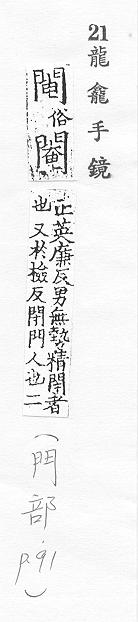 21 龍龕手鏡
俗 閹
正英廉反男無勢精閉者
也又扵檢反閉門人也二
(門部. p.91)